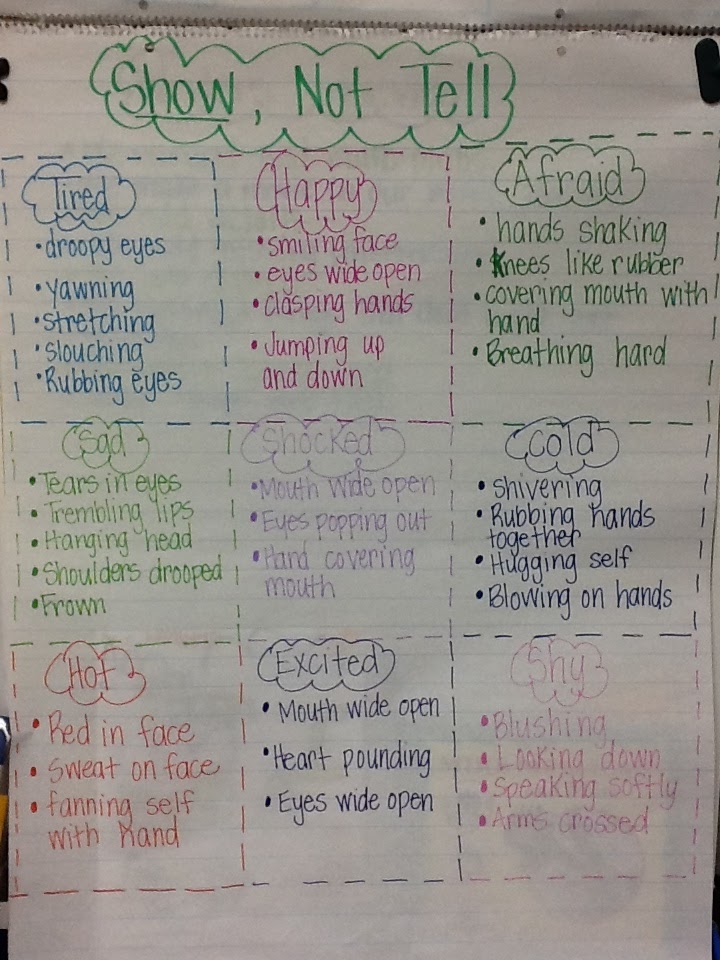 Show, Not Tell
Tired
•droopy eyes
•yawning
•stretching
•slouching
•Rubbing eyes
Happy
•smiling face
•eyes wide open
•clasping hands
•Jumping up
and down
Afraid
•hands shaking
•Knees like rubber
•covering mouth with
hand
•Breathing hard
Sad
•Tears in eyes
•Trembling lips
•Hanging head
•Shoulders drooped
•Frown
Shocked
•Mouth wide open
•Eyes popping out
•Hand covering
mouth
Cold
•Shivering
•Rubbing hands
together
•Hugging self
•Blowing on hands
Hot
•Red in face
•Sweat on face
•fanning self
with hand
Excited
•Mouth wide open
•Heart pounding
•Eyes wide open
Shy
•Blushing
•Looking down
•Speaking softly
•Arms crossed